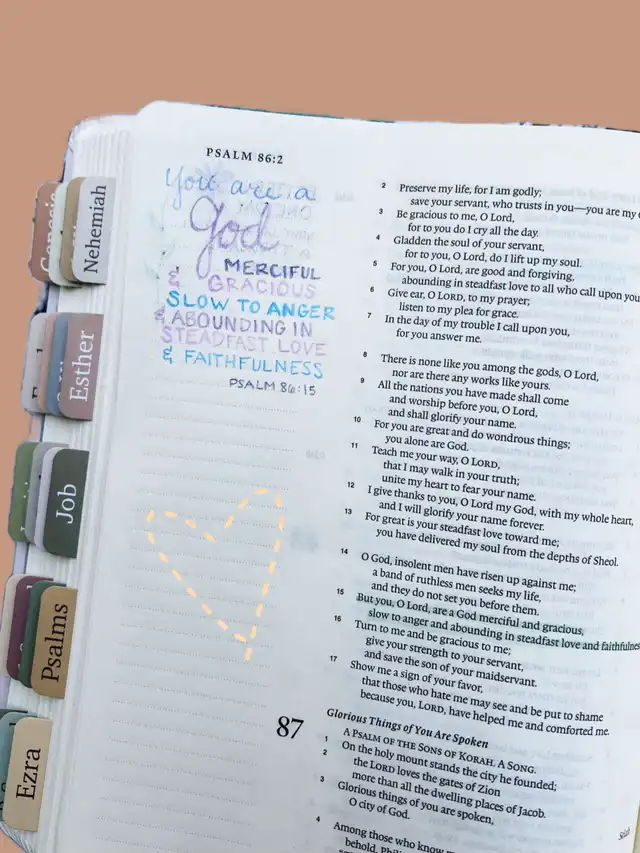 PSALM 86:2
You are a
God
MERCIFUL
& GRACIOUS
SLOW TO ANGER
& ABOUNDING IN
STEADFAST LOVE
& FAITHFULNESS
PSALM 86:15
Nehemiah
Esther
Job
Psalms
Ezra
2 Preserve my life, for I am godly;
save your servant, who trusts in you—you are my
3 Be gracious to me, O Lord,
for to you do I cry all the day.
4 Gladden the soul of your servant,
for to you, O Lord, do I lift up my soul.
5 For you, O Lord, are good and forgiving,
abounding in steadfast love to all who call upon you
6 Give ear, O LORD, to my prayer;
listen to my plea for grace.
7 In the day of my trouble I call upon you,
for you answer me.
8 There is none like you among the gods, O Lord,
nor are there any works like yours.
9 All the nations you have made shall come
and worship before you, O Lord,
and shall glorify your name.
10 For you are great and do wondrous things;
you alone are God.
11 Teach me your way, O LORD,
that I may walk in your truth;
unite my heart to fear your name.
12 I give thanks to you, O Lord my God, with my whole heart,
and I will glorify your name forever.
13 For great is your steadfast love toward me;
you have delivered my soul from the depths of Sheol.
14 O God, insolent men have risen up against me;
a band of ruthless men seeks my life,
and they do not set you before them.
15 But you, O Lord, are a God merciful and gracious,
slow to anger and abounding in steadfast love and faithfulness
16 Turn to me and be gracious to me;
give your strength to your servant,
and save the son of your maidservant.
17 Show me a sign of your favor,
that those who hate me may see and be put to shame
because you, LORD, have helped me and comforted me.
Glorious Things of You Are Spoken
87
1 A PSALM OF THE SONS OF KORAH. A SONG.
2 On the holy mount stands the city he founded;
the LORD loves the gates of Zion
more than all the dwelling places of Jacob.
3 Glorious things of you are spoken,
O city of God.
Selah
4 Among those who know
behold,